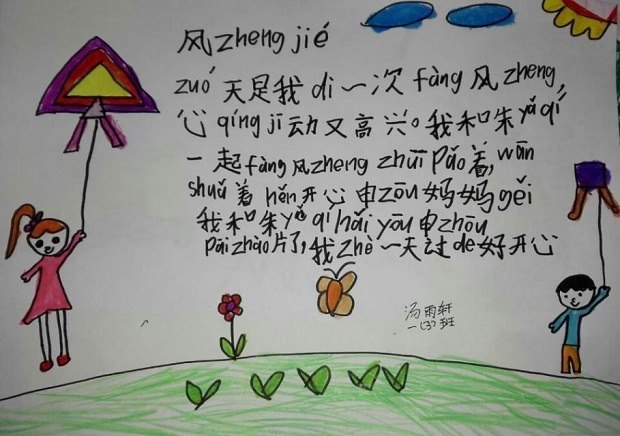 风zheng jié
zuó天是我di一次fàng风zheng,
心qíng jī动又高兴。我和朱yǎ qí
一起fàng风zheng zhuī pǎo着,wān
shuǎ着hěn开心中zōu妈妈gěi
我和朱yǎ qí hái yōu中zhōu
Pāi zhào片了,我zhè一天过de好开心
汤雨轩
一(3)班